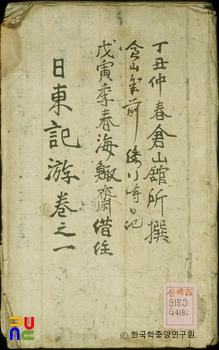 丁丑仲春倉山館所撰
倉山年前倭行時日記
戊寅季春海齋借往
日東記游 卷之一
古
915.3
G418i
© 한국학중앙연구원